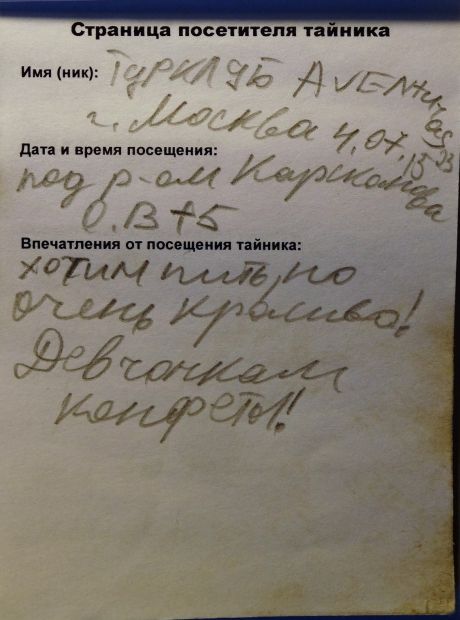 Страница посетителя тайника
Имя (ник): Турклуб AVENTURA
г. Москва 4.07.15
Дата и время посещения:
под р-ом Карсканова
О.В +5
Впечатления от посещения тайника:
хотим пить, но
очень красиво!
Девчонкам
конфеты!!